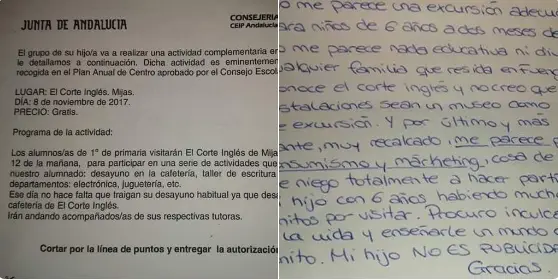 JUNTA DE ANDALUCIA
CONSEJERIA
CEIP Andalucía
El grupo de su hijo/a va a realizar una actividad complementaria en
le detallamos a continuación. Dicha actividad es eminentemen
recogida en el Plan Anual de Centro aprobado por el Consejo Escol
LUGAR: El Corte Inglés. Mijas.
DÍA: 8 de noviembre de 2017.
PRECIO: Gratis.
Programa de la actividad:
Los alumnos/as de 1º de primaria visitarán El Corte Inglés de Mija
12 de la mañana, para participar en una serie de actividades que
nuestro alumnado: desayuno en la cafetería, taller de escritura
departamentos: electrónica, juguetería, etc.
Ese día no hace falta que traigan su desayuno habitual ya que des
cafetería de El Corte Inglés.
Irán andando acompañados/as de sus respectivas tutoras.
Cortar por la línea de puntos y entregar la autorizació
o me parece una excursión adecu
ara niños de 6 años a dos meses de
o me parece nada educativa ni di
alquier familia que resida en Fuen
onoce el corte inglés y no creo que
stalaciones sean un museo como
e excursión. Y por último y más
ante, muy recalcado, me parece p
nsumismo y márketing, cosa de
e niego totalmente a hacer parti
hijo con 6 años habiendo much
nitos por visitar. Procuro inculc
la vida y enseñarle un mundo
nito. Mi hijo NO ES PUBLICID
Gracias.